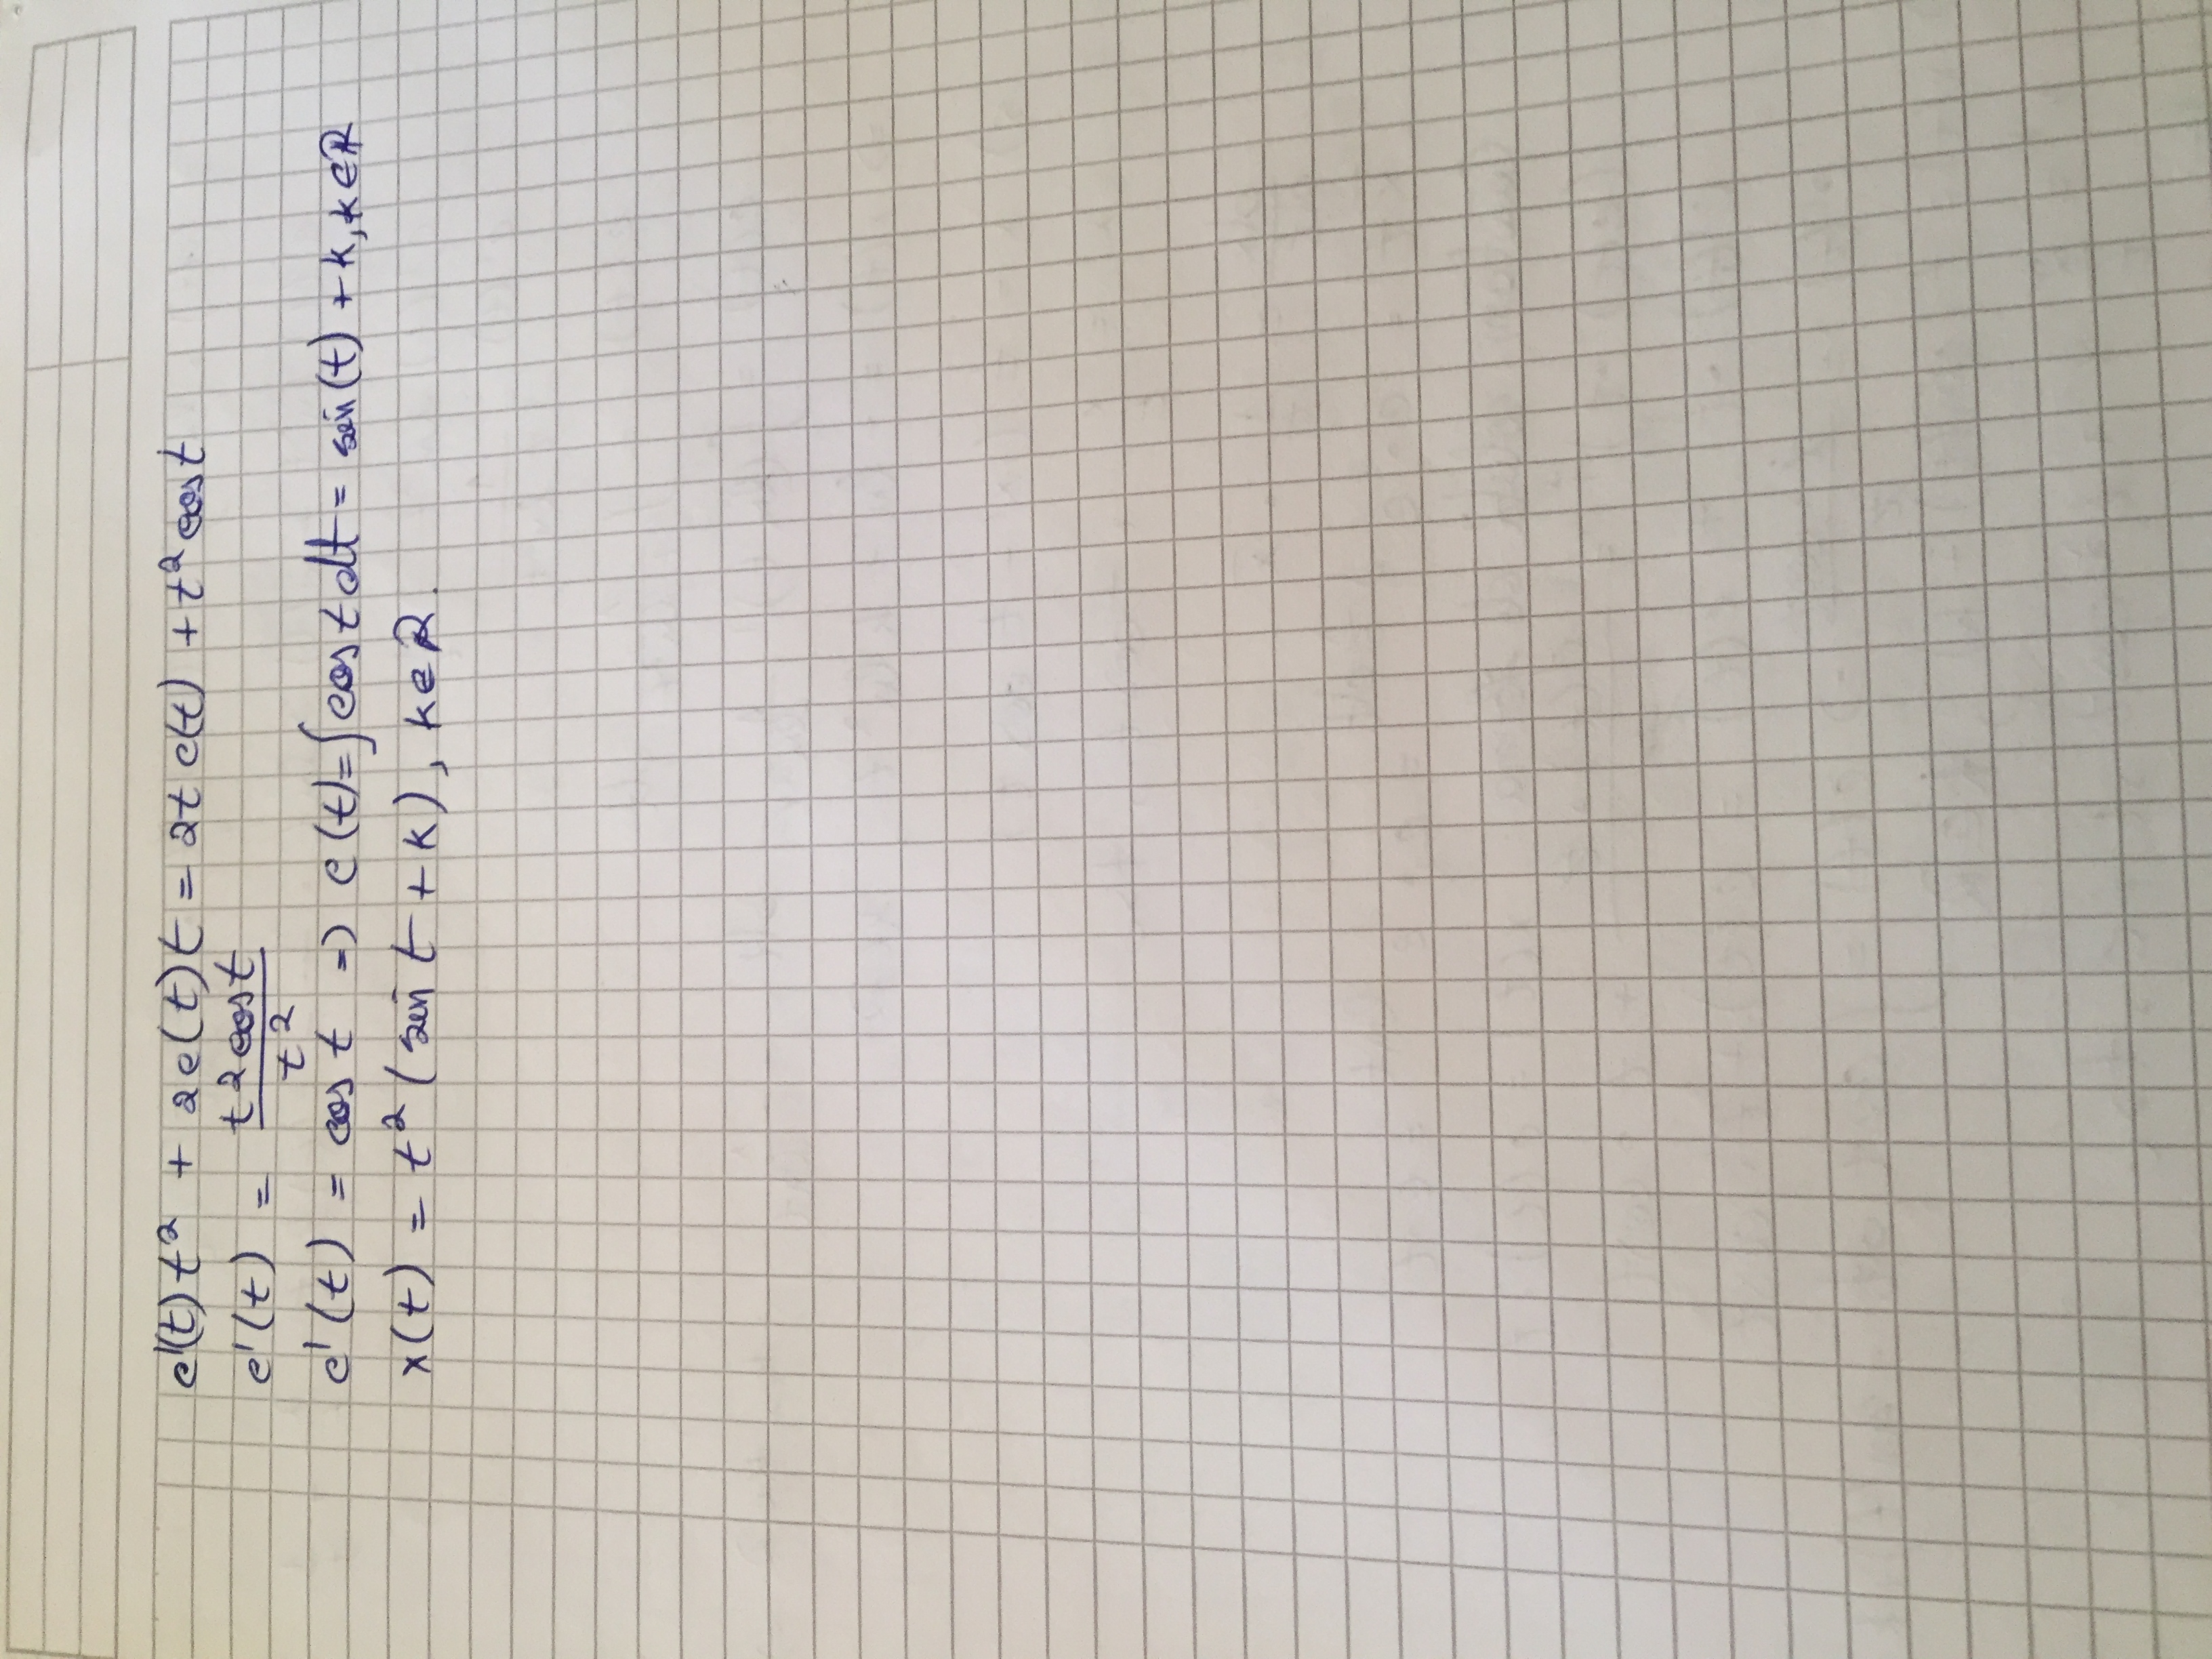 c'(t) t² + 2c(t)t = 2t c(t) + t² cos t
c'(t) = t² cos t / t²
c'(t) = cos t => c(t) = ∫ cos t dt = sin(t) + k, k∈ℝ
x(t) = t² (sin t + k), k∈ℝ.